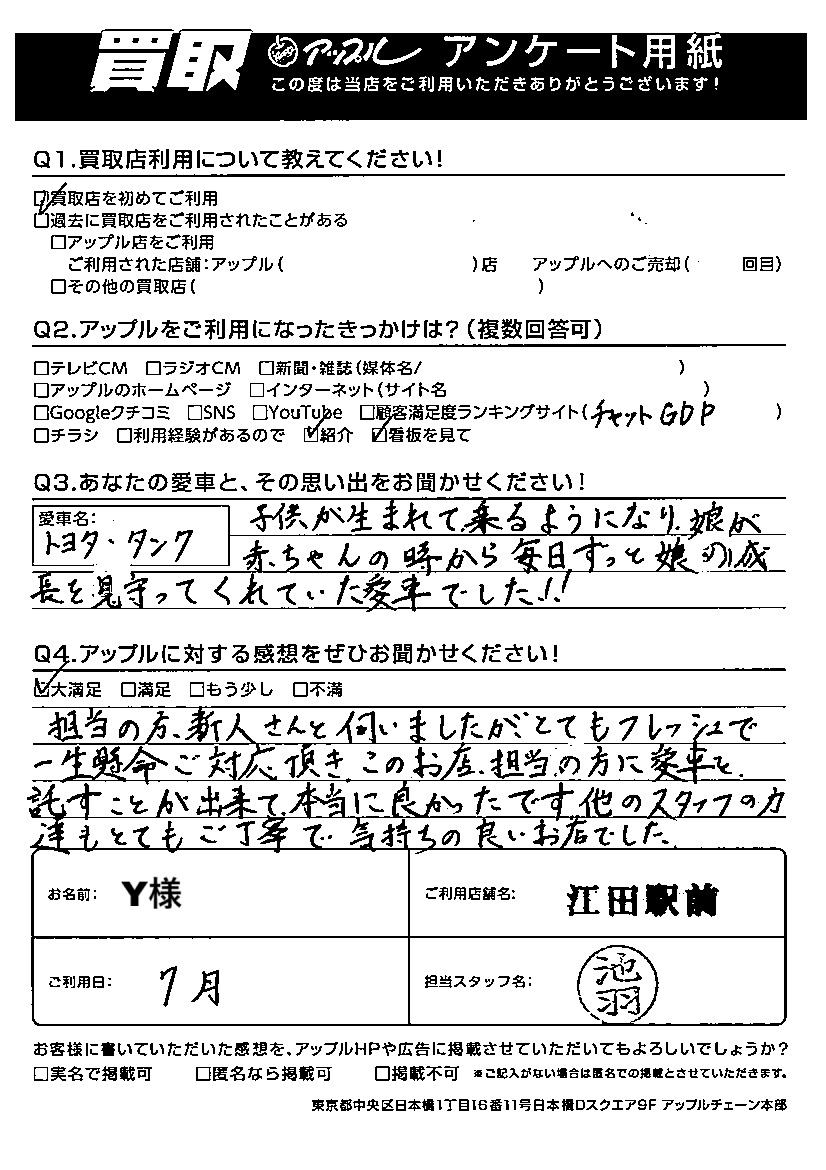 買取 アップル アンケート用紙
この度は当店をご利用いただきありがとうございます!
Q1.買取店利用について教えてください!
☑買取店を初めてご利用
□過去に買取店をご利用されたことがある
□アップル店をご利用
ご利用された店舗:アップル( )店 アップルへのご売却( 回目)
□その他の買取店( )
Q2.アップルをご利用になったきっかけは?(複数回答可)
□テレビCM □ラジオCM □新聞・雑誌(媒体名/ )
□アップルのホームページ □インターネット(サイト名 )
□Googleクチコミ □SNS □YouTube □顧客満足度ランキングサイト(チャットGDP )
□チラシ □利用経験があるので ☑紹介 ☑看板を見て
Q3.あなたの愛車と、その思い出をお聞かせください!
愛車名:
トヨタ・タンク
子供が生まれて、乗るようになり、娘が
赤ちゃんの時から毎日ずっと娘の成
長を見守ってくれていた愛車でした!!
Q4.アップルに対する感想をぜひお聞かせください!
☑大満足 □満足 □もう少し □不満
担当の方、新人さんと伺いましたが、とてもフレッシュで
一生懸命ご対応頂き、このお店、担当の方に愛車を、
託すことが出来て、本当に良かったです。他のスタッフの方
達もとてもご丁寧で、気持ちの良いお店でした。
お名前: Y様 ご利用店舗名: 江田駅前
ご利用日: 7月 担当スタッフ名: 池羽
お客様に書いていただいた感想を、アップルHPや広告に掲載させていただいてもよろしいでしょうか?
□実名で掲載可 □匿名なら掲載可 □掲載不可 ※ご記入がない場合は匿名での掲載とさせていただきます。
東京都中央区日本橋1丁目16番11号日本橋Dスクエア9F アップルチェーン本部